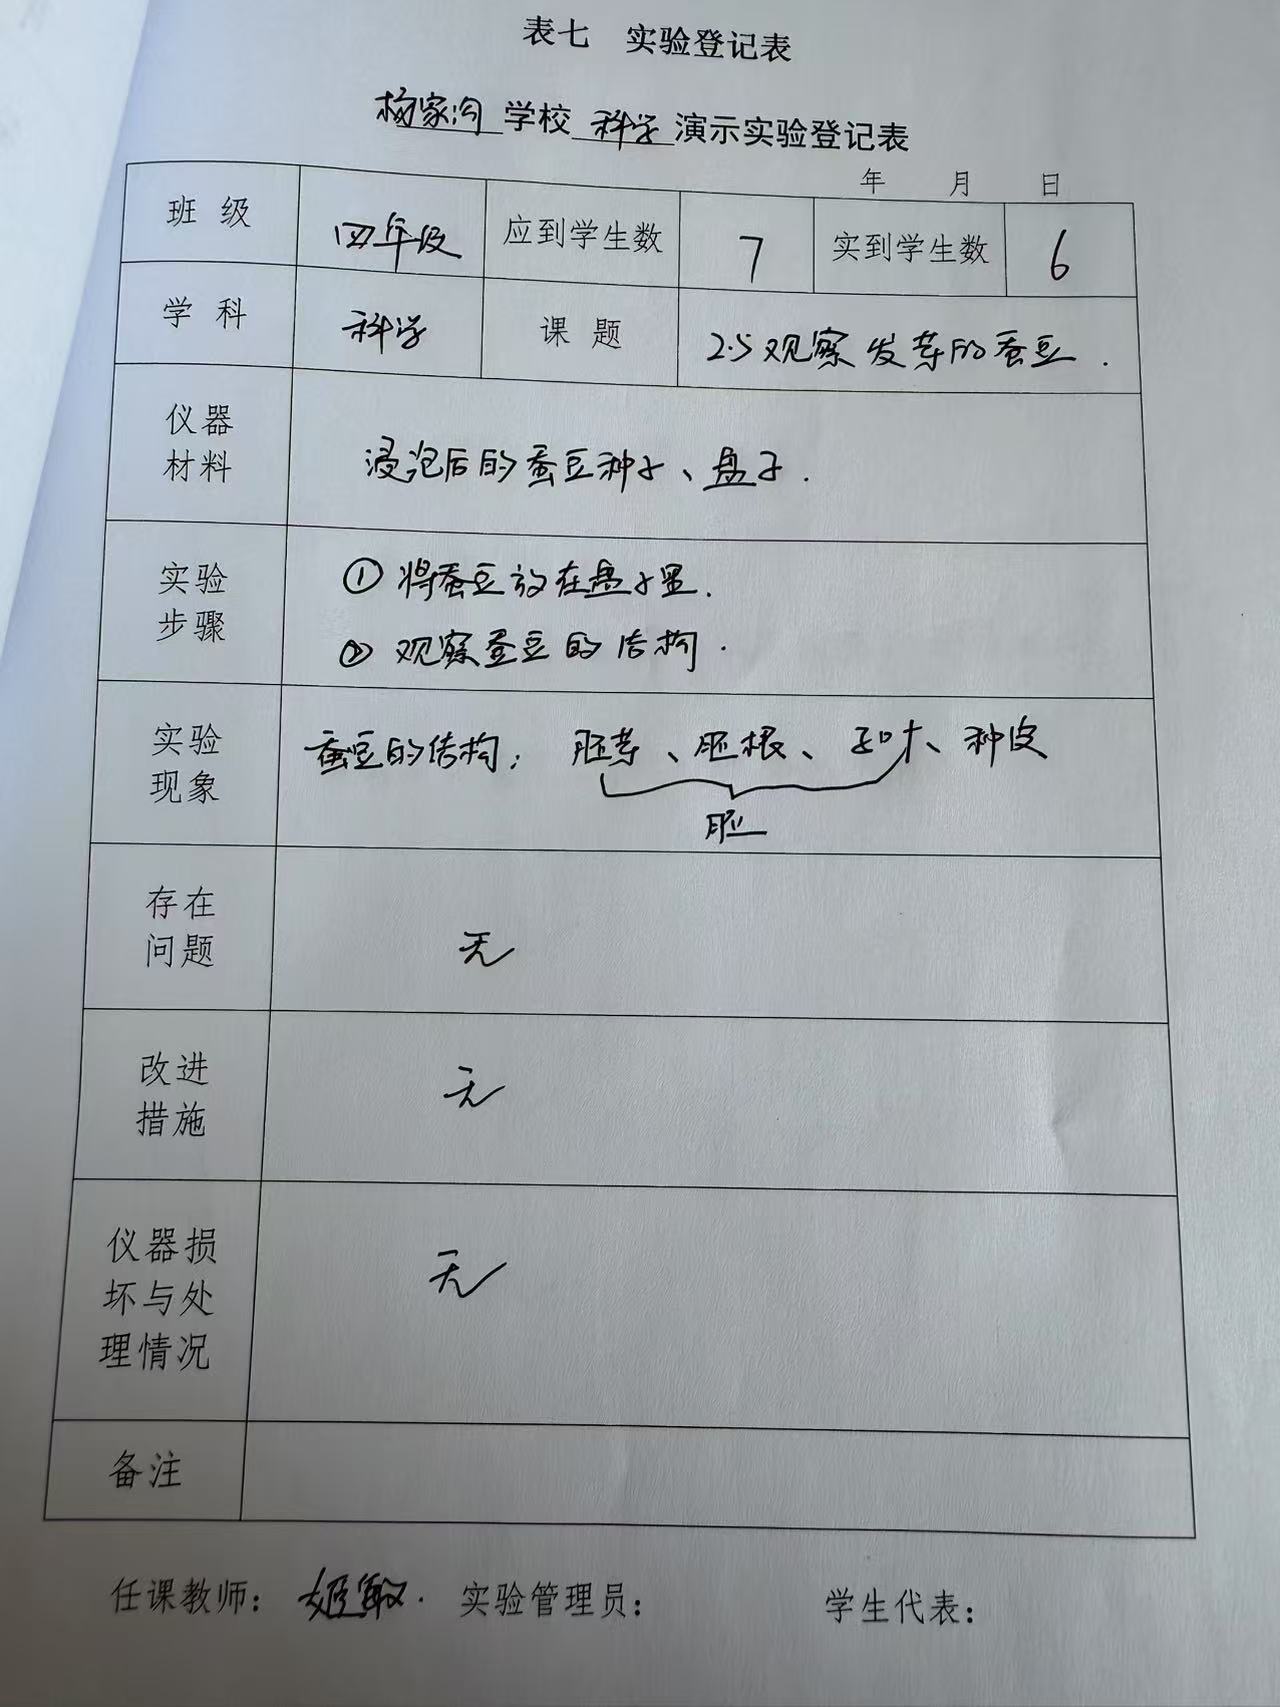 表七 实验登记表
杨家沟 学校 科学 演示实验登记表
年 月 日
班级 四年级 应到学生数 7 实到学生数 6
学科 科学 课题 2.5观察发芽的蚕豆.
仪器
材料
浸泡后的蚕豆种子、盘子.
实验
步骤
①将蚕豆放在盘子里.
②观察蚕豆的结构.
实验
现象
蚕豆的结构: 胚芽、胚根、子叶、种皮
胚
存在
问题
无
改进
措施
无
仪器损
坏与处
理情况
无
备注
任课教师: 姬敏. 实验管理员: 学生代表: